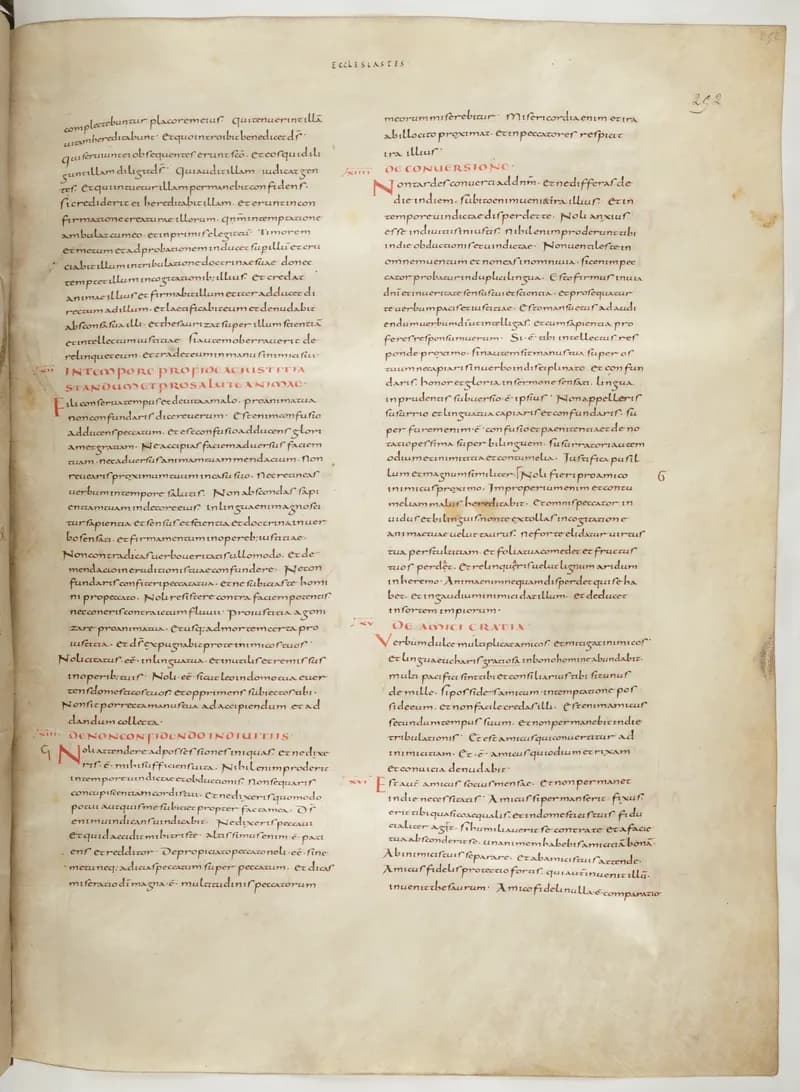 ECCLESIASTES
252
complectebuntur placorem eius. Qui tenuerint illā
uitam hereditabunt. Et quo introibit benedicet dſ.
qui seruiunt ei obsequentes erunt scō. Et eos qui dili
gunt illam diligit dſ. Qui audit illam iudicat gen
tes. Et qui intuetur illam permanebit confidens.
si crediderit ei hereditabit illam. et erunt in con
firmatione creaturae illorum. qnm in temptatione
ambulat cum eo. et in primis elegit eum. Timorem
et metum et adprobationem inducet sup illū et cru
ciabit illum in tribulatione doctrinae suae donec
temptet illum in cogitationib; illius. Et credat
animae illius et firmabit illum et iter adducet di
rectum ad illum. et laetificabit eum et denudabit
absconsa sua illi. et thesaurizat super illum scientiā
et intellectum iustitiae. si autem oberrauerit de
relinquet eum. et tradet eum in manus inimici sui.
XII IN TEMPORE PROPIO E IUSTITIA
STANDUM ET PRO SALUTE ANIMAE
Fili conserua tempus et deuita a malo. pro anima tua
non confundaris dicere uerum. Est enim confusio
adducens peccatum. et est confusio adducens glori
am et gratiam. Ne accipias faciem aduersus faciem
tuam. nec aduersus animam tuam mendacium. Non
reuearis proximum tuum in casu suo. Nec retineas
uerbum in tempore salutis. Non abscondas sapi
entiam tuam in decore eius. In lingua enim agnosci
tur sapientia et sensus et scientia et doctrina in uer
bo sensati. et firmamentum in operib; iustitiae.
Non contradicas uerbo ueritatis ullo modo. Et de
mendacio ineruditionis tuae confundere. Ne con
fundaris confiteri peccata tua. et ne subicias te homi
ni pro peccato. Noli resistere contra faciem potentis
nec coneris contra ictum fluuii. Pro iustitia agoni
zare pro anima tua. Et usq; ad mortem certa pro
iustitia. et dſ expugnabit pro te inimicos tuos.
Noli citatus eē. in lingua tua. et inutilis et remissus
in operib; tuis. Noli eē. sicut leo in domo tua euer
tens domesticos tuos et opprimens subiectos tibi.
Non sit porrecta manus tua ad accipiendum et ad
dandum collecta.
XIII DE NON CONFIDENDO IN DIUITIIS
Noli attendere ad possessiones iniquas. et ne dixe
ris. ē. mihi sufficiens uita. Nihil enim proderit
in tempore uindictae et obductionis. Non sequaris
concupiscentiam cordis tui. et ne dixeris quomodo
potui aut quis me subiciet propter facta mea. Dſ
enim uindicans uindicabit. Ne dixeris peccaui
et quid accidit mihi triste. altissimus enim. ē. pati
ens et redditor. De propiciato peccato noli. eē. sine
metu neq; adicias peccatum super peccatum. Et dicas
miseratio dni magna. ē. multitudinis peccatorum
meorum miserebitur. Misericordia enim et ira
ab illo cito proximat. et in peccatores respicit
ira illius.
XIIII DE CONUERSIONE.
Non tardes conuerti ad dnm. et ne differas de
die in diem. subito enim uenit ira illius. et in
tempore uindictae disperdet te. Noli anxius
esse in diuitiis iniustis. nihil enim proderunt tibi
in die obductionis et uindictae. Non uentiles te in
omnem uentum et non eas in omni uia. sic enim pec
cator probatur in duplici lingua. Esto firmus in uia
dni et in ueritate sensus tui et scientia. et prosequatur
te uerbum pacis et iustitiae. Esto mansuetus ad audi
endum uerbum dī ut intellegas. et cum sapientia pro
feres responsum uerum. Si. ē. tibi intellectus res
ponde proximo. sin autem sit manus tua super os
tuum ne capiaris in uerbo indisciplinato. et confun
daris. honor et gloria in sermone sensati. lingua
inprudentis subuersio. ē. ipsius. Non appelleris
susurrio et lingua tua capiaris et confundaris. su
per furem enim. ē. confusio et paenitentia et deno
tatio pessima super bilinguem. susurratori autem
odium et inimicitia et contumelia. Iustifica pusil
lum et magnum similiter. Noli fieri pro amico
inimicus proximo. Improperium enim et contu
meliam malus hereditabit. et omnis peccator in
uidus et bilinguis non te extollas in cogitatione
animae tuae uelut taurus. ne forte elidatur uirtus
tua per stultitiam. et folia tua comedet et fructus
tuos perdet. et relinqueris uelut lignum aridum
in heremo. Anima enim nequam disperdet qui se ha
bet. et in gaudium inimici dat illum. et deducet
in sortem impiorum.
XV DE AMICITIA
Verbum dulce multiplicat amicos. et mitigat inimicos.
Et lingua eucharis gratiosa in bono homine abundabit.
multi pacifici sint tibi et consiliarius tibi sit unus
de mille. si possides amicum. in temptatione pos
side eum. et non facile credas illi. Est enim amicus
secundum tempus suum. et non permanebit in die
tribulationis. Et est amicus qui conuertitur ad
inimicitiam. Et. ē. amicus qui odium et rixam
et conuicia denudabit.
XVI Est autē amicus socius mensae. et non permanet
in die necessitatis. Amicus si permanserit fixus
erit tibi quasi coaequalis. et in domesticis tuis fidu
cialiter aget. si humiliauerit se contra te. et a facie
tua absconderit se. unanimem habebis amicitiā bonā.
Ab inimicis tuis separare. et ab amicis tuis attende.
Amicus fidelis protectio fortis. qui aut inuenit illū.
inuenit thesaurum. Amico fideli nulla. ē. comparatio